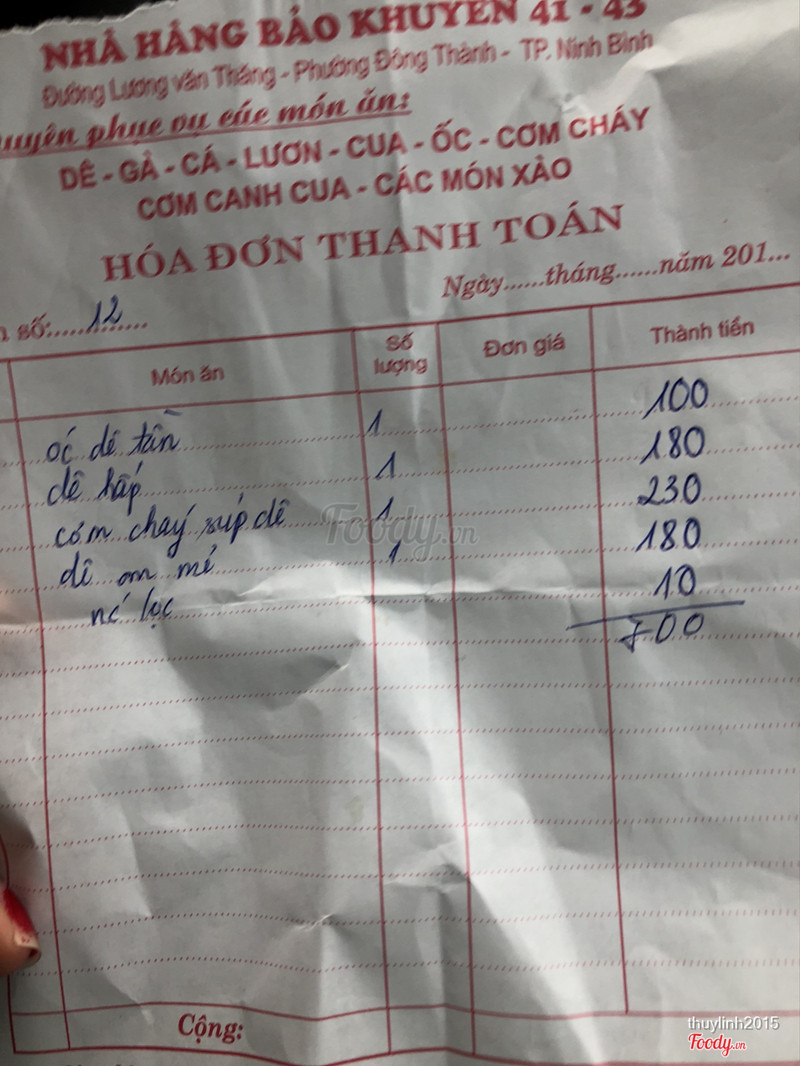 NHÀ HÀNG BẢO KHUYÊN 41 - 43
Đường Lương Văn Thăng - Phường Đông Thành - TP. Ninh Bình
uyên phục vụ các món ăn:
DÊ - GÀ - CÁ - LƯƠN - CUA - ỐC - CƠM CHÁY
CƠM CANH CUA - CÁC MÓN XÀO
HÓA ĐƠN THANH TOÁN
Ngày......tháng......năm 201...
n số:.....12......
Món ăn Số lượng Đơn giá Thành tiền
óc dê tần 1 100
dê hấp 1 180
cơm cháy súp dê 1 230
dê om mẻ 1 180
nc lọc 10
700
Cộng:
Foody.vn
thuylinh2015
Foody.vn